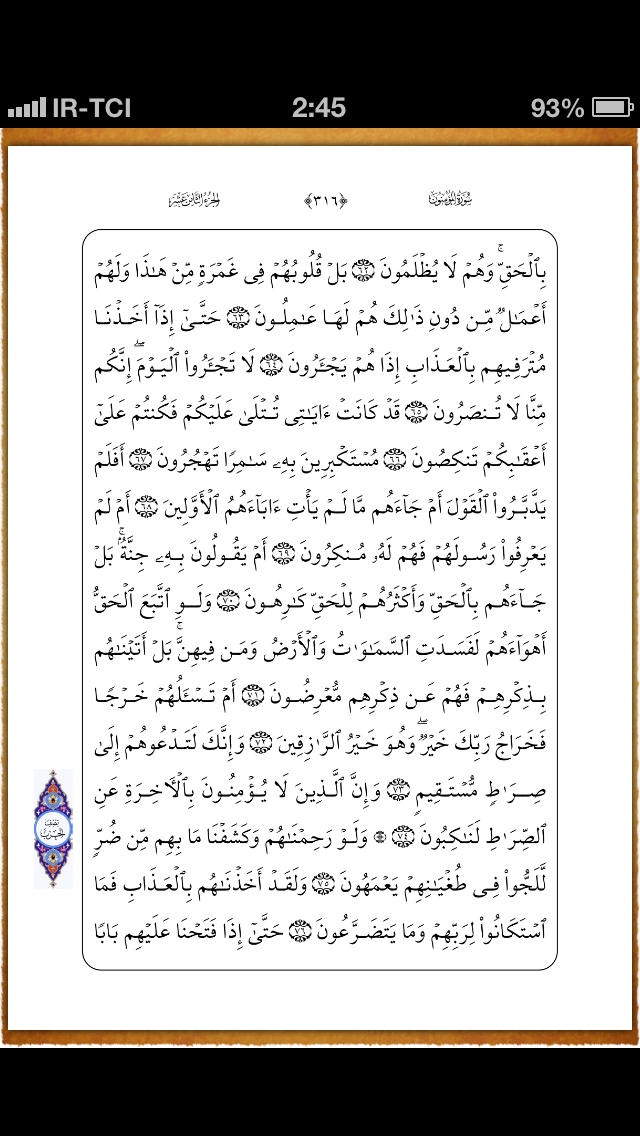 IR-TCI 2:45 93%
سورة المؤمنون ﴿٣١٦﴾ الجزء الثامن عشر
بِٱلۡحَقِّۚ وَهُمۡ لَا يُظۡلَمُونَ ٦٢ بَلۡ قُلُوبُهُمۡ فِى غَمۡرَةٍ مِّنۡ هَـٰذَا وَلَهُمۡ
أَعۡمَـٰلٌ مِّن دُونِ ذَٰلِكَ هُمۡ لَهَا عَـٰمِلُونَ ٦٣ حَتَّىٰٓ إِذَآ أَخَذۡنَا
مُتۡرَفِيهِم بِٱلۡعَذَابِ إِذَا هُمۡ يَجۡـَٔرُونَ ٦٤ لَا تَجۡـَٔرُوا۟ ٱلۡيَوۡمَۖ إِنَّكُم
مِّنَّا لَا تُنصَرُونَ ٦٥ قَدۡ كَانَتۡ ءَايَـٰتِى تُتۡلَىٰ عَلَيۡكُمۡ فَكُنتُمۡ عَلَىٰٓ
أَعۡقَـٰبِكُمۡ تَنكِصُونَ ٦٦ مُسۡتَكۡبِرِينَ بِهِۦ سَـٰمِرًا تَهۡجُرُونَ ٦٧ أَفَلَمۡ
يَدَّبَّرُوا۟ ٱلۡقَوۡلَ أَمۡ جَآءَهُم مَّا لَمۡ يَأۡتِ ءَابَآءَهُمُ ٱلۡأَوَّلِينَ ٦٨ أَمۡ لَمۡ
يَعۡرِفُوا۟ رَسُولَهُمۡ فَهُمۡ لَهُۥ مُنكِرُونَ ٦٩ أَمۡ يَقُولُونَ بِهِۦ جِنَّةُۢۚ بَلۡ
جَآءَهُم بِٱلۡحَقِّ وَأَكۡثَرُهُمۡ لِلۡحَقِّ كَـٰرِهُونَ ٧٠ وَلَوِ ٱتَّبَعَ ٱلۡحَقُّ
أَهۡوَآءَهُمۡ لَفَسَدَتِ ٱلسَّمَـٰوَٰتُ وَٱلۡأَرۡضُ وَمَن فِيهِنَّۚ بَلۡ أَتَيۡنَـٰهُم
بِذِكۡرِهِمۡ فَهُمۡ عَن ذِكۡرِهِم مُّعۡرِضُونَ ٧١ أَمۡ تَسۡـَٔلُهُمۡ خَرۡجًا
فَخَرَاجُ رَبِّكَ خَيۡرٌۖ وَهُوَ خَيۡرُ ٱلرَّٰزِقِينَ ٧٢ وَإِنَّكَ لَتَدۡعُوهُمۡ إِلَىٰ
صِرَٰطٍ مُّسۡتَقِيمٍ ٧٣ وَإِنَّ ٱلَّذِينَ لَا يُؤۡمِنُونَ بِٱلۡأَخِرَةِ عَنِ
ٱلصِّرَٰطِ لَنَـٰكِبُونَ ٧٤ ۞ وَلَوۡ رَحِمۡنَـٰهُمۡ وَكَشَفۡنَا مَا بِهِم مِّن ضُرٍّ
لَّلَجُّوا۟ فِى طُغۡيَـٰنِهِمۡ يَعۡمَهُونَ ٧٥ وَلَقَدۡ أَخَذۡنَـٰهُم بِٱلۡعَذَابِ فَمَا
ٱسۡتَكَانُوا۟ لِرَبِّهِمۡ وَمَا يَتَضَرَّعُونَ ٧٦ حَتَّىٰٓ إِذَا فَتَحۡنَا عَلَيۡهِم بَابًا
نصف
الحزب